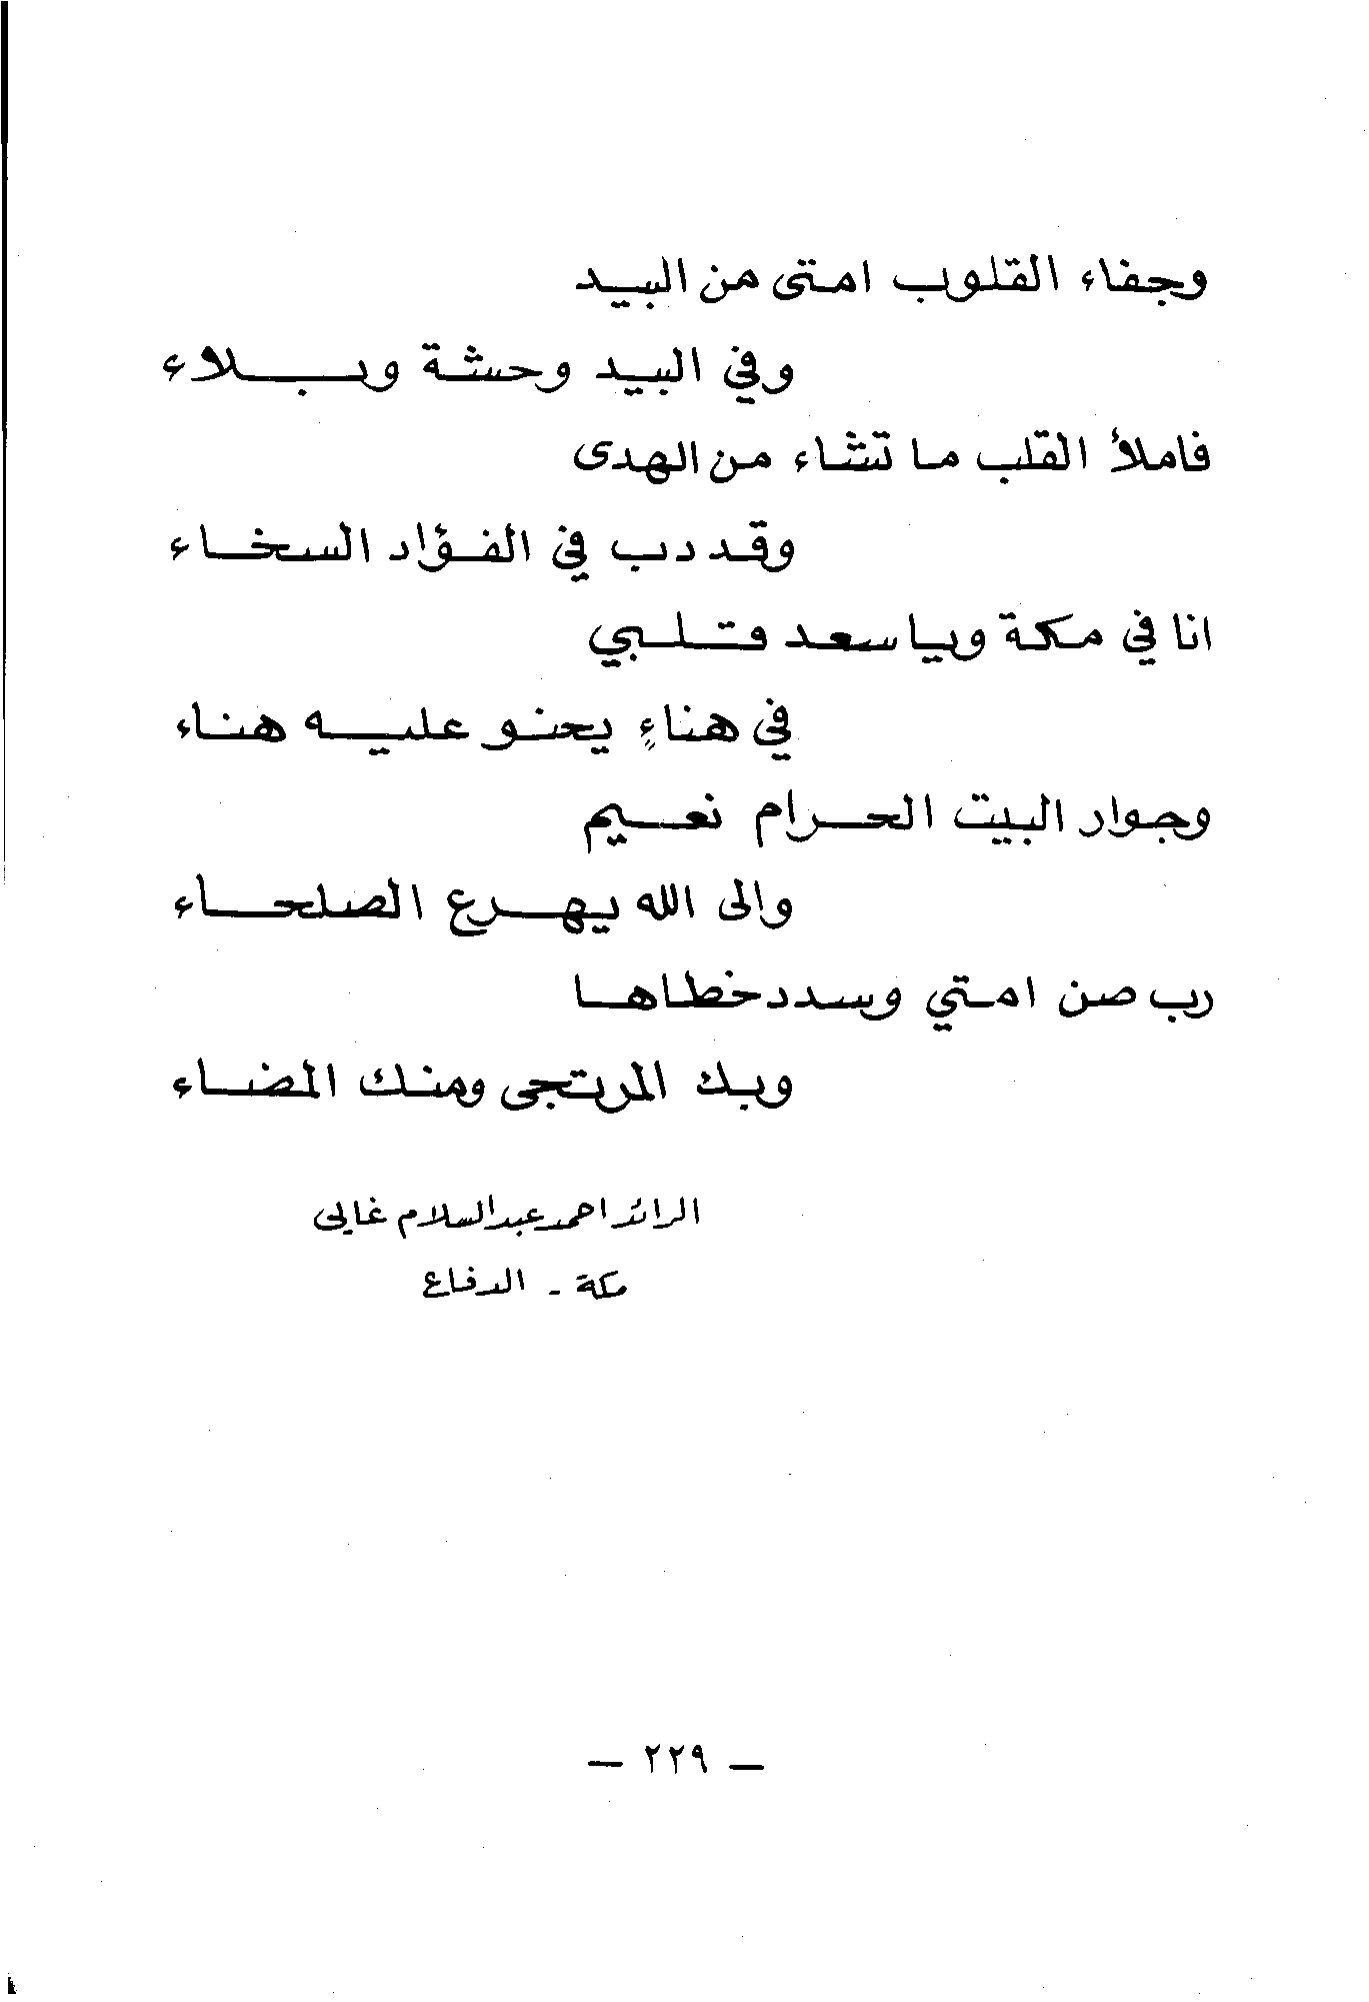 وجفاء القلوب امتى من البيد
وفي البيد وحشة وبلاء
فاملأ القلب ما تشاء من الهدى
وقد دب في الفؤاد السخاء
انا في مكة ويا سعد قلبي
في هناءٍ يحنو عليه هناء
وجوار البيت الحرام نعيم
والى الله يهرع الصلحاء
رب صن امتي وسدد خطاها
وبك المرتجى ومنك المضاء
الرائد احمد عبد السلام غالي
مكة - الدفاع
— ٢٢٩ —